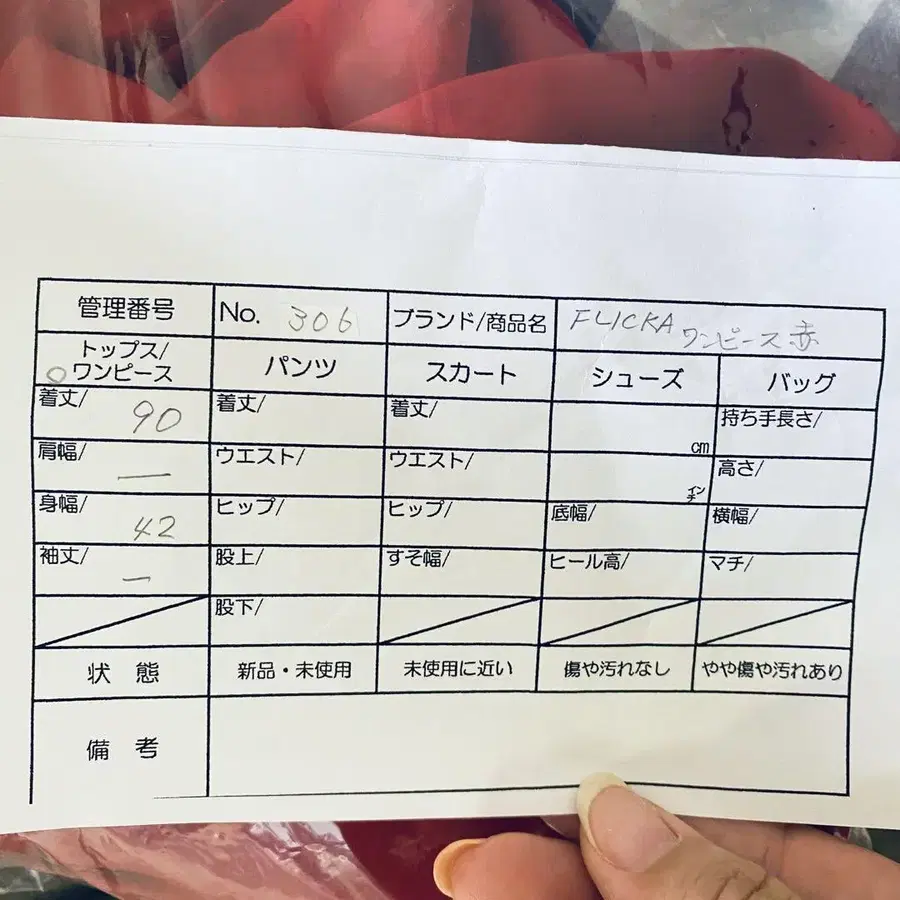 管理番号 No. 306 ブランド/商品名 FLICKA ワンピース 赤
トップス/
○ワンピース パンツ スカート シューズ バッグ
着丈/ 90 着丈/ 着丈/ cm 持ち手長さ/
肩幅/ — ウエスト/ ウエスト/ インチ 高さ/
身幅/ 42 ヒップ/ ヒップ/ 底幅/ 横幅/
袖丈/ — 股上/ すそ幅/ ヒール高/ マチ/
股下/
状態 新品・未使用 未使用に近い 傷や汚れなし やや傷や汚れあり
備考